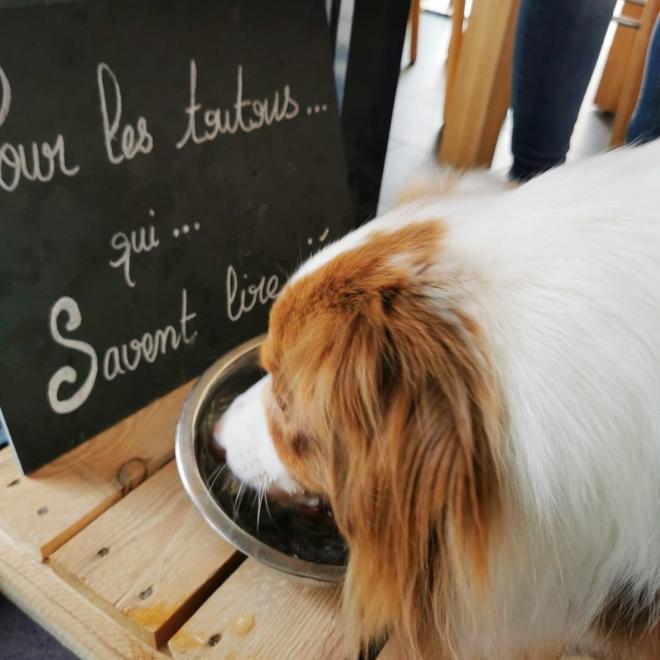 Pour les toutous...
qui...
Savent lire